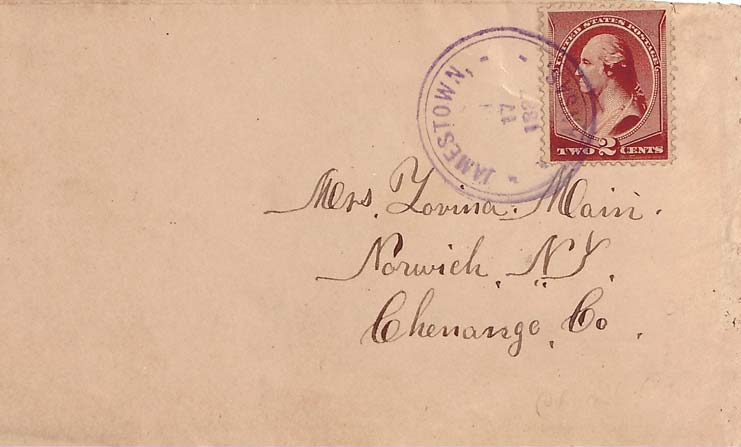 UNITED STATES POSTAGE
TWO 2 CENTS
JAMESTOWN,
17
Mrs. Lovina. Main.
Norwich. N.Y.
Chenango. Co.